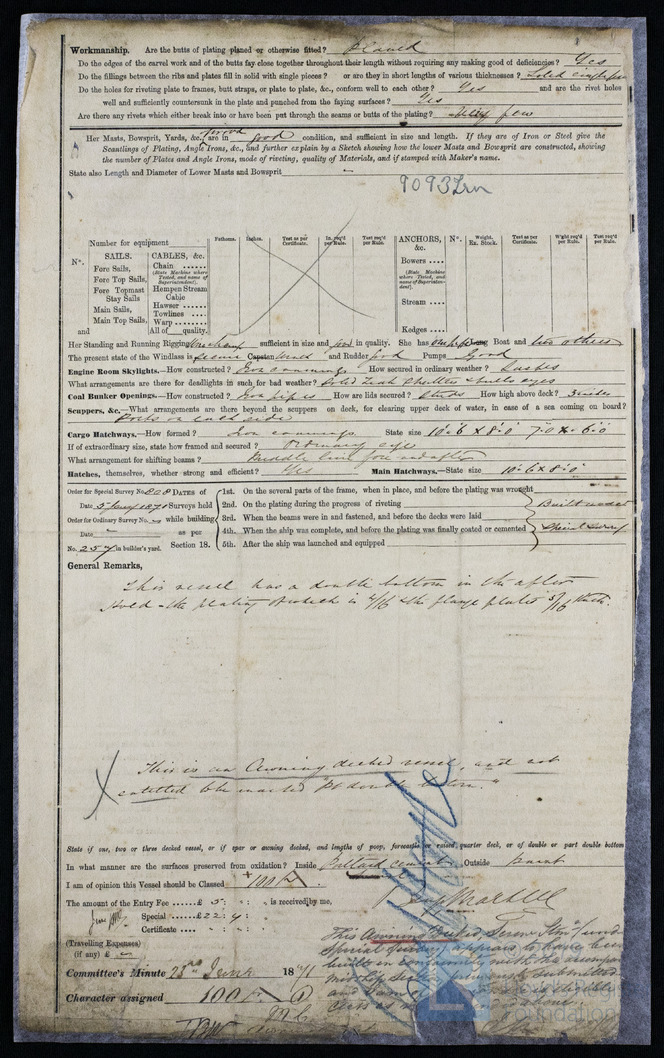 Workmanship. Are the butts of plating planed or otherwise fitted? Planed
Do the edges of the carvel work and of the butts fay close together throughout their length without requiring any making good of deficiencies? Yes
Do the fillings between the ribs and plates fill in solid with single pieces? or are they in short lengths of various thicknesses? Solid
Do the holes for riveting plate to frames, butt straps, or plate to plate, &c., conform well to each other? Yes and are the rivet holes
well and sufficiently countersunk in the plate and punched from the faying surfaces? Yes
Are there any rivets which either break into or have been put through the seams or butts of the plating? Very few
Her Masts, Bowsprit, Yards, &c., are in good condition, and sufficient in size and length. If they are of Iron or Steel give the
Scantlings of Plating, Angle Irons, &c., and further explain by a Sketch showing how the lower Masts and Bowsprit are constructed, showing
the number of Plates and Angle Irons, mode of riveting, quality of Materials, and if stamped with Maker's name.
State also Length and Diameter of Lower Masts and Bowsprit
9093 Irn
Number for equipment
Fathoms. Inches. Test as per Certificate. In. req'd per Rule. Test req'd per Rule. ANCHORS, &c. N°. Weight. Ex. Stock. Test as per Certificate. W'ght req'd per Rule. Test req'd per Rule.
N°. SAILS. CABLES, &c.
Fore Sails, Chain
(State Machine where Tested, and name of Superintendent).
Fore Top Sails,
Fore Topmast Stay Sails
Main Sails,
Main Top Sails,
and
Hempen Stream Cable
Hawser
Towlines
Warp
All of quality.
Bowers
(State Machine where Tested, and name of Superintendent).
Stream
Kedges
Her Standing and Running Rigging sufficient in size and good in quality. She has Long Boat and two others
The present state of the Windlass is Capstan and Rudder good Pumps Good
Engine Room Skylights.—How constructed? Iron coamings How secured in ordinary weather?
What arrangements are there for deadlights in such for bad weather? Solid Teak Shutters & bulls eyes
Coal Bunker Openings.—How constructed? Iron pipes How are lids secured? Studs How high above deck? 3 inches
Scuppers, &c.—What arrangements are there beyond the scuppers on deck, for clearing upper deck of water, in case of a sea coming on board?
Ports on each side
Cargo Hatchways.—How formed? Iron coamings State size 10'6 x 8'0 7'0 x 6'0
If of extraordinary size, state how framed and secured? Ordinary
What arrangement for shifting beams? Middle line fore and after
Hatches, themselves, whether strong and efficient? Yes Main Hatchways.—State size 10'6 x 8'0
Order for Special Survey No. 808
Date 1870
Order for Ordinary Survey No.
Date
No. 257 in builder's yard.
DATES of Surveys held while building as per Section 18.
1st. On the several parts of the frame, when in place, and before the plating was wrought
2nd. On the plating during the progress of riveting
3rd. When the beams were in and fastened, and before the decks were laid
4th. When the ship was complete, and before the plating was finally coated or cemented
5th. After the ship was launched and equipped
Built under
Special Survey
General Remarks,
This vessel has a double bottom in the after
Hold - the plating of which is 4/16 & the flange plates 5/16 thick.
This is an Awning decked vessel, and not
entitled to be marked "Pt double bottom."
State if one, two or three decked vessel, or if spar or awning decked, and lengths of poop, forecastle or raised quarter deck, or of double or part double bottom
In what manner are the surfaces preserved from oxidation? Inside Portland cement Outside Paint
I am of opinion this Vessel should be Classed 100 A
The amount of the Entry Fee £ 5 : : is received by me,
Special £ 22 : 4 :
Certificate : :
(Travelling Expenses)
(if any) £
Committee's Minute 23rd June 1871
Character assigned 100 A
This Awning Decked Screw Stmr
Special Survey appears to have been
built in conformity with the
midship section previously submitted
Foundation